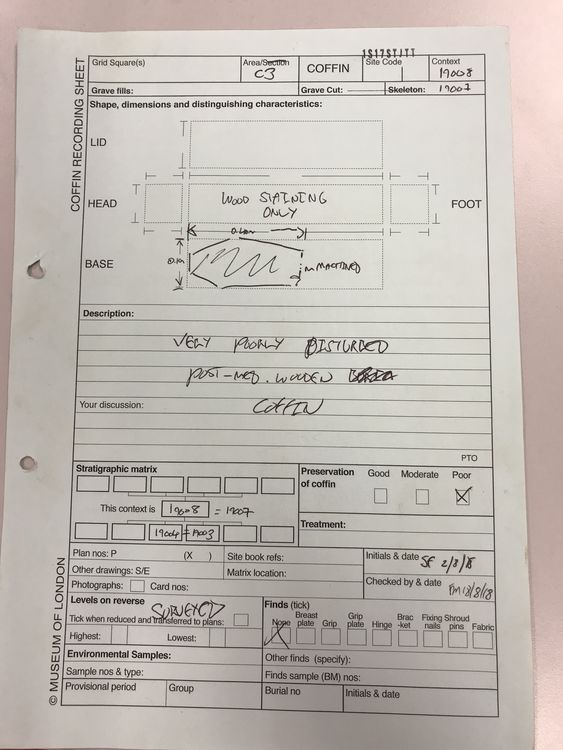 1S17STJTT
Grid Square(s) Area/Section COFFIN Site Code Context
C3 19008
Grave fills: Grave Cut: Skeleton: 19007
COFFIN RECORDING SHEET
Shape, dimensions and distinguishing characteristics:
LID
HEAD WOOD STAINING FOOT
ONLY
BASE
Description:
VERY POORLY DISTURBED
POST-MED. WOODEN
Your discussion: COFFIN
PTO
Stratigraphic matrix
Preservation Good Moderate Poor
of coffin
This context is 19008 = 19007
Treatment:
19004 = 19003
Plan nos: P (X ) Site book refs: Initials & date SF 2/8/18
Other drawings: S/E Matrix location:
Photographs: Card nos: Checked by & date FM 13/8/18
Levels on reverse SURVEYED
Tick when reduced and transferred to plans:
Highest: Lowest:
Finds (tick)
None Breast plate Grip Grip plate Hinge Brac-ket Fixing nails Shroud pins Fabric
Environmental Samples: Other finds (specify):
Sample nos & type: Finds sample (BM) nos:
Provisional period Group Burial no Initials & date
© MUSEUM OF LONDON